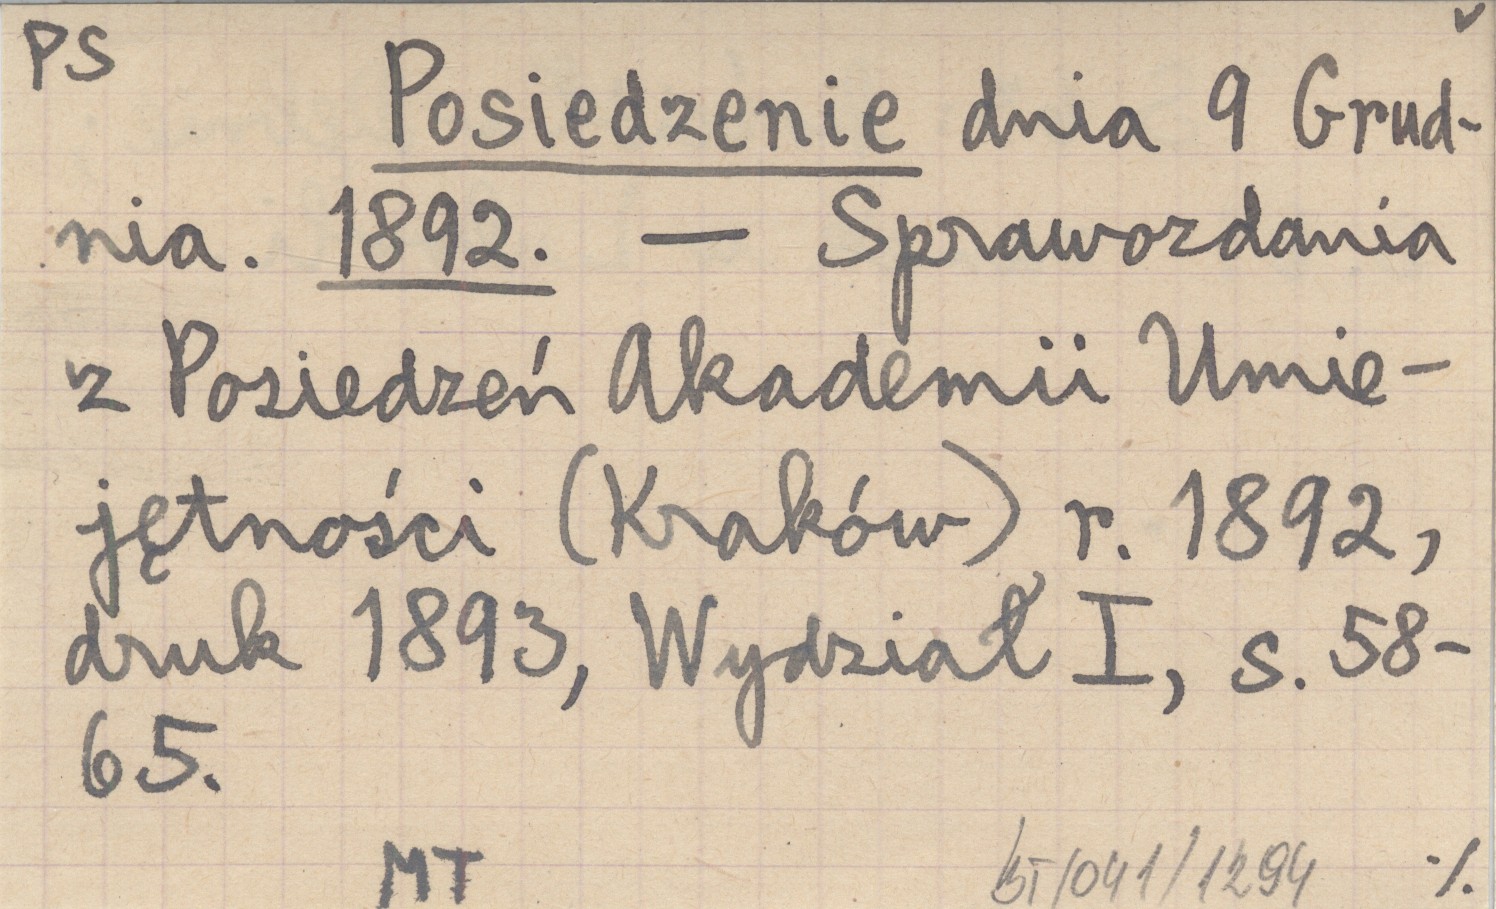 PS
Posiedzenie dnia 9 Grud-
nia. 1892. — Sprawozdania
z Posiedzeń Akademii Umie-
jętności (Kraków) r. 1892,
druk 1893, Wydział I, s. 58-
65.
MT /041/1294 ./.